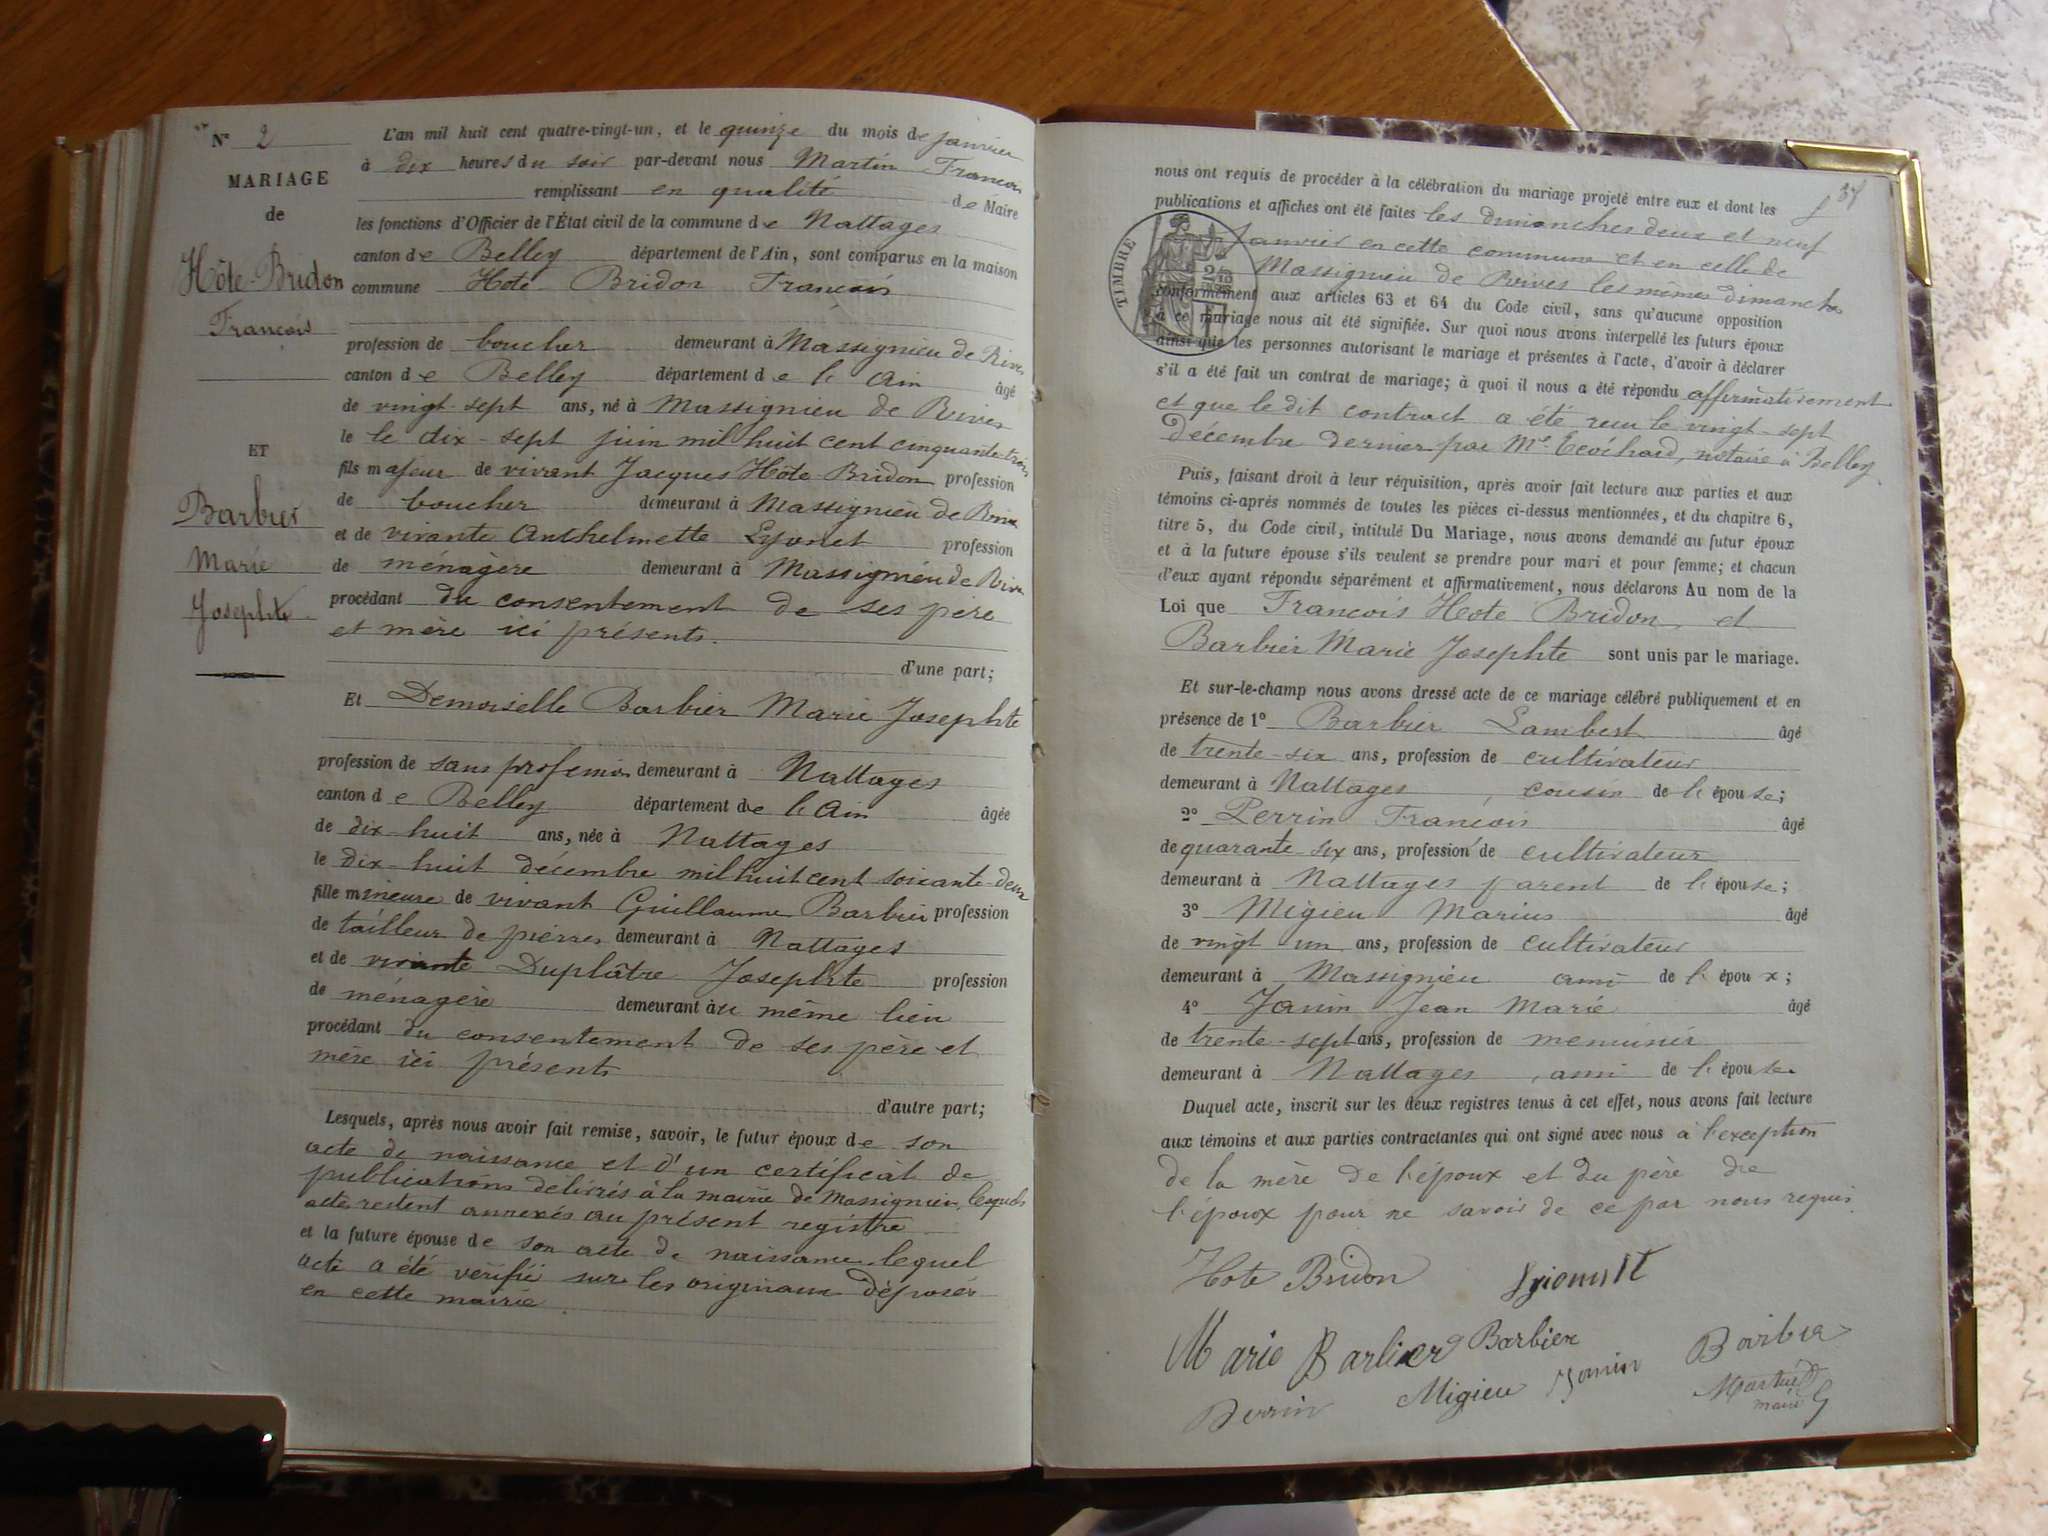 N° 2
MARIAGE
de
Hôte-Bridon
François
ET
Barbier
Marie
Josephte
L'an mil huit cent quatre-vingt-un, et le quinze du mois de janvier
à dix heures du soir par-devant nous Martin François
remplissant en qualité de Maire
les fonctions d'Officier de l'État civil de la commune de Nattages
canton de Belley département de l'Ain, sont comparus en la maison
commune Hote Bridon François
profession de boucher demeurant à Massignieu de Rives
canton de Belley département de l'Ain âgé
de vingt-sept ans, né à Massignieu de Rives
le le dix-sept juin mil huit cent cinquante-trois
fils majeur de vivant Jacques Hôte-Bridon profession
de boucher demeurant à Massignieu de Rives
et de vivante Anthelmette Lyonet profession
de ménagère demeurant à Massignieu de Rives
procédant du consentement de ses père
et mère ici présents.
d'une part;
Et Demoiselle Barbier Marie Josephte
profession de sans profession demeurant à Nattages
canton de Belley département de l'Ain âgée
de dix-huit ans, née à Nattages
le dix-huit décembre mil huit cent soixante-deux
fille mineure de vivant Guillaume Barbier profession
de tailleur de pierres demeurant à Nattages
et de vivante Duplâtre Josephte profession
de ménagère demeurant au même lieu
procédant du consentement de ses père et
mère ici présents
d'autre part;
Lesquels, après nous avoir fait remise, savoir, le futur époux de son
acte de naissance et d'un certificat de
publications délivrés à la mairie de Massignieu, lesquels
actes restent annexés au présent registre
et la future épouse de son acte de naissance lequel
acte a été vérifié sur les originaux déposés
en cette mairie.
37
nous ont requis de procéder à la célébration du mariage projeté entre eux et dont les
publications et affiches ont été faites les dimanches deux et neuf
Janvier en cette commune et en celle de
Massignieu de Rives les mêmes dimanches
TIMBRE
conformément aux articles 63 et 64 du Code civil, sans qu'aucune opposition
à ce mariage nous ait été signifiée. Sur quoi nous avons interpellé les futurs époux
ainsi que les personnes autorisant le mariage et présentes à l'acte, d'avoir à déclarer
s'il a été fait un contrat de mariage; à quoi il nous a été répondu affirmativement
et que le dit contract a été reçu le vingt-sept
décembre dernier par Me notaire à Belley
Puis, faisant droit à leur réquisition, après avoir fait lecture aux parties et aux
témoins ci-après nommés de toutes les pièces ci-dessus mentionnées, et du chapitre 6,
titre 5, du Code civil, intitulé Du Mariage, nous avons demandé au futur époux
et à la future épouse s'ils veulent se prendre pour mari et pour femme; et chacun
d'eux ayant répondu séparément et affirmativement, nous déclarons Au nom de la
Loi que François Hote Bridon, et
Barbier Marie Josephte sont unis par le mariage.
Et sur-le-champ nous avons dressé acte de ce mariage célébré publiquement et en
présence de 1° Barbier Lambert âgé
de trente-six ans, profession de cultivateur
demeurant à Nattages, cousin de l'épouse;
2° Perrin François âgé
de quarante-six ans, profession de cultivateur
demeurant à Nattages parent de l'épouse;
3° Migieu Marius âgé
de vingt un ans, profession de cultivateur
demeurant à Massignieu ami de l'époux;
4° Janin Jean Marie âgé
de trente-sept ans, profession de menuisier
demeurant à Nattages, ami de l'épouse
Duquel acte, inscrit sur les deux registres tenus à cet effet, nous avons fait lecture
aux témoins et aux parties contractantes qui ont signé avec nous à l'exception
de la mère de l'époux et du père de
l'époux pour ne savoir de ce par nous requis.
Hote Bridon
Marie Barbier Barbier Barbier
Perrin Migieu Janin Martin
maire